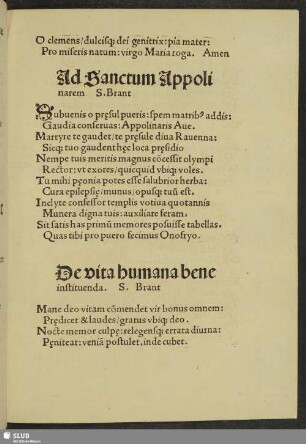 O clemens/dulcisq; dei genitrix: pia mater:
Pro miseris natum: virgo Maria roga. Amen
Ad Sanctum Appoli
narem S. Brant
Subuenis o pręsul pueris: spem matribꝰ addis:
Gaudia conseruas: Appolinaris Aue.
Martyre te gaudet/te pręsule diua Rauenna:
Sicq; tuo gaudent hęc loca pręsidio
Nempe tuis meritis magnus cõcessit olympi
Rector: vt exores/quicquid vbiq; voles.
Tu mihi pęonia potes esse salubrior herba:
Cura epilepsię/munus/opusq; tuũ est.
Inclyte confessor templis votiua quotannis
Munera digna tuis: auxiliare feram.
Sit satis has primũ memores posuisse tabellas.
Quas tibi pro puero fecimus Onofryo.
De vita humana bene
instituenda. S. Brant
Mane deo vitam cõmendet vir bonus omnem:
Prędicet & laudes/gratus vbiq; deo.
Nocte memor culpę: relegensq; errata diurna:
Pęniteat: veniã postulet, inde cubet.
SLUB